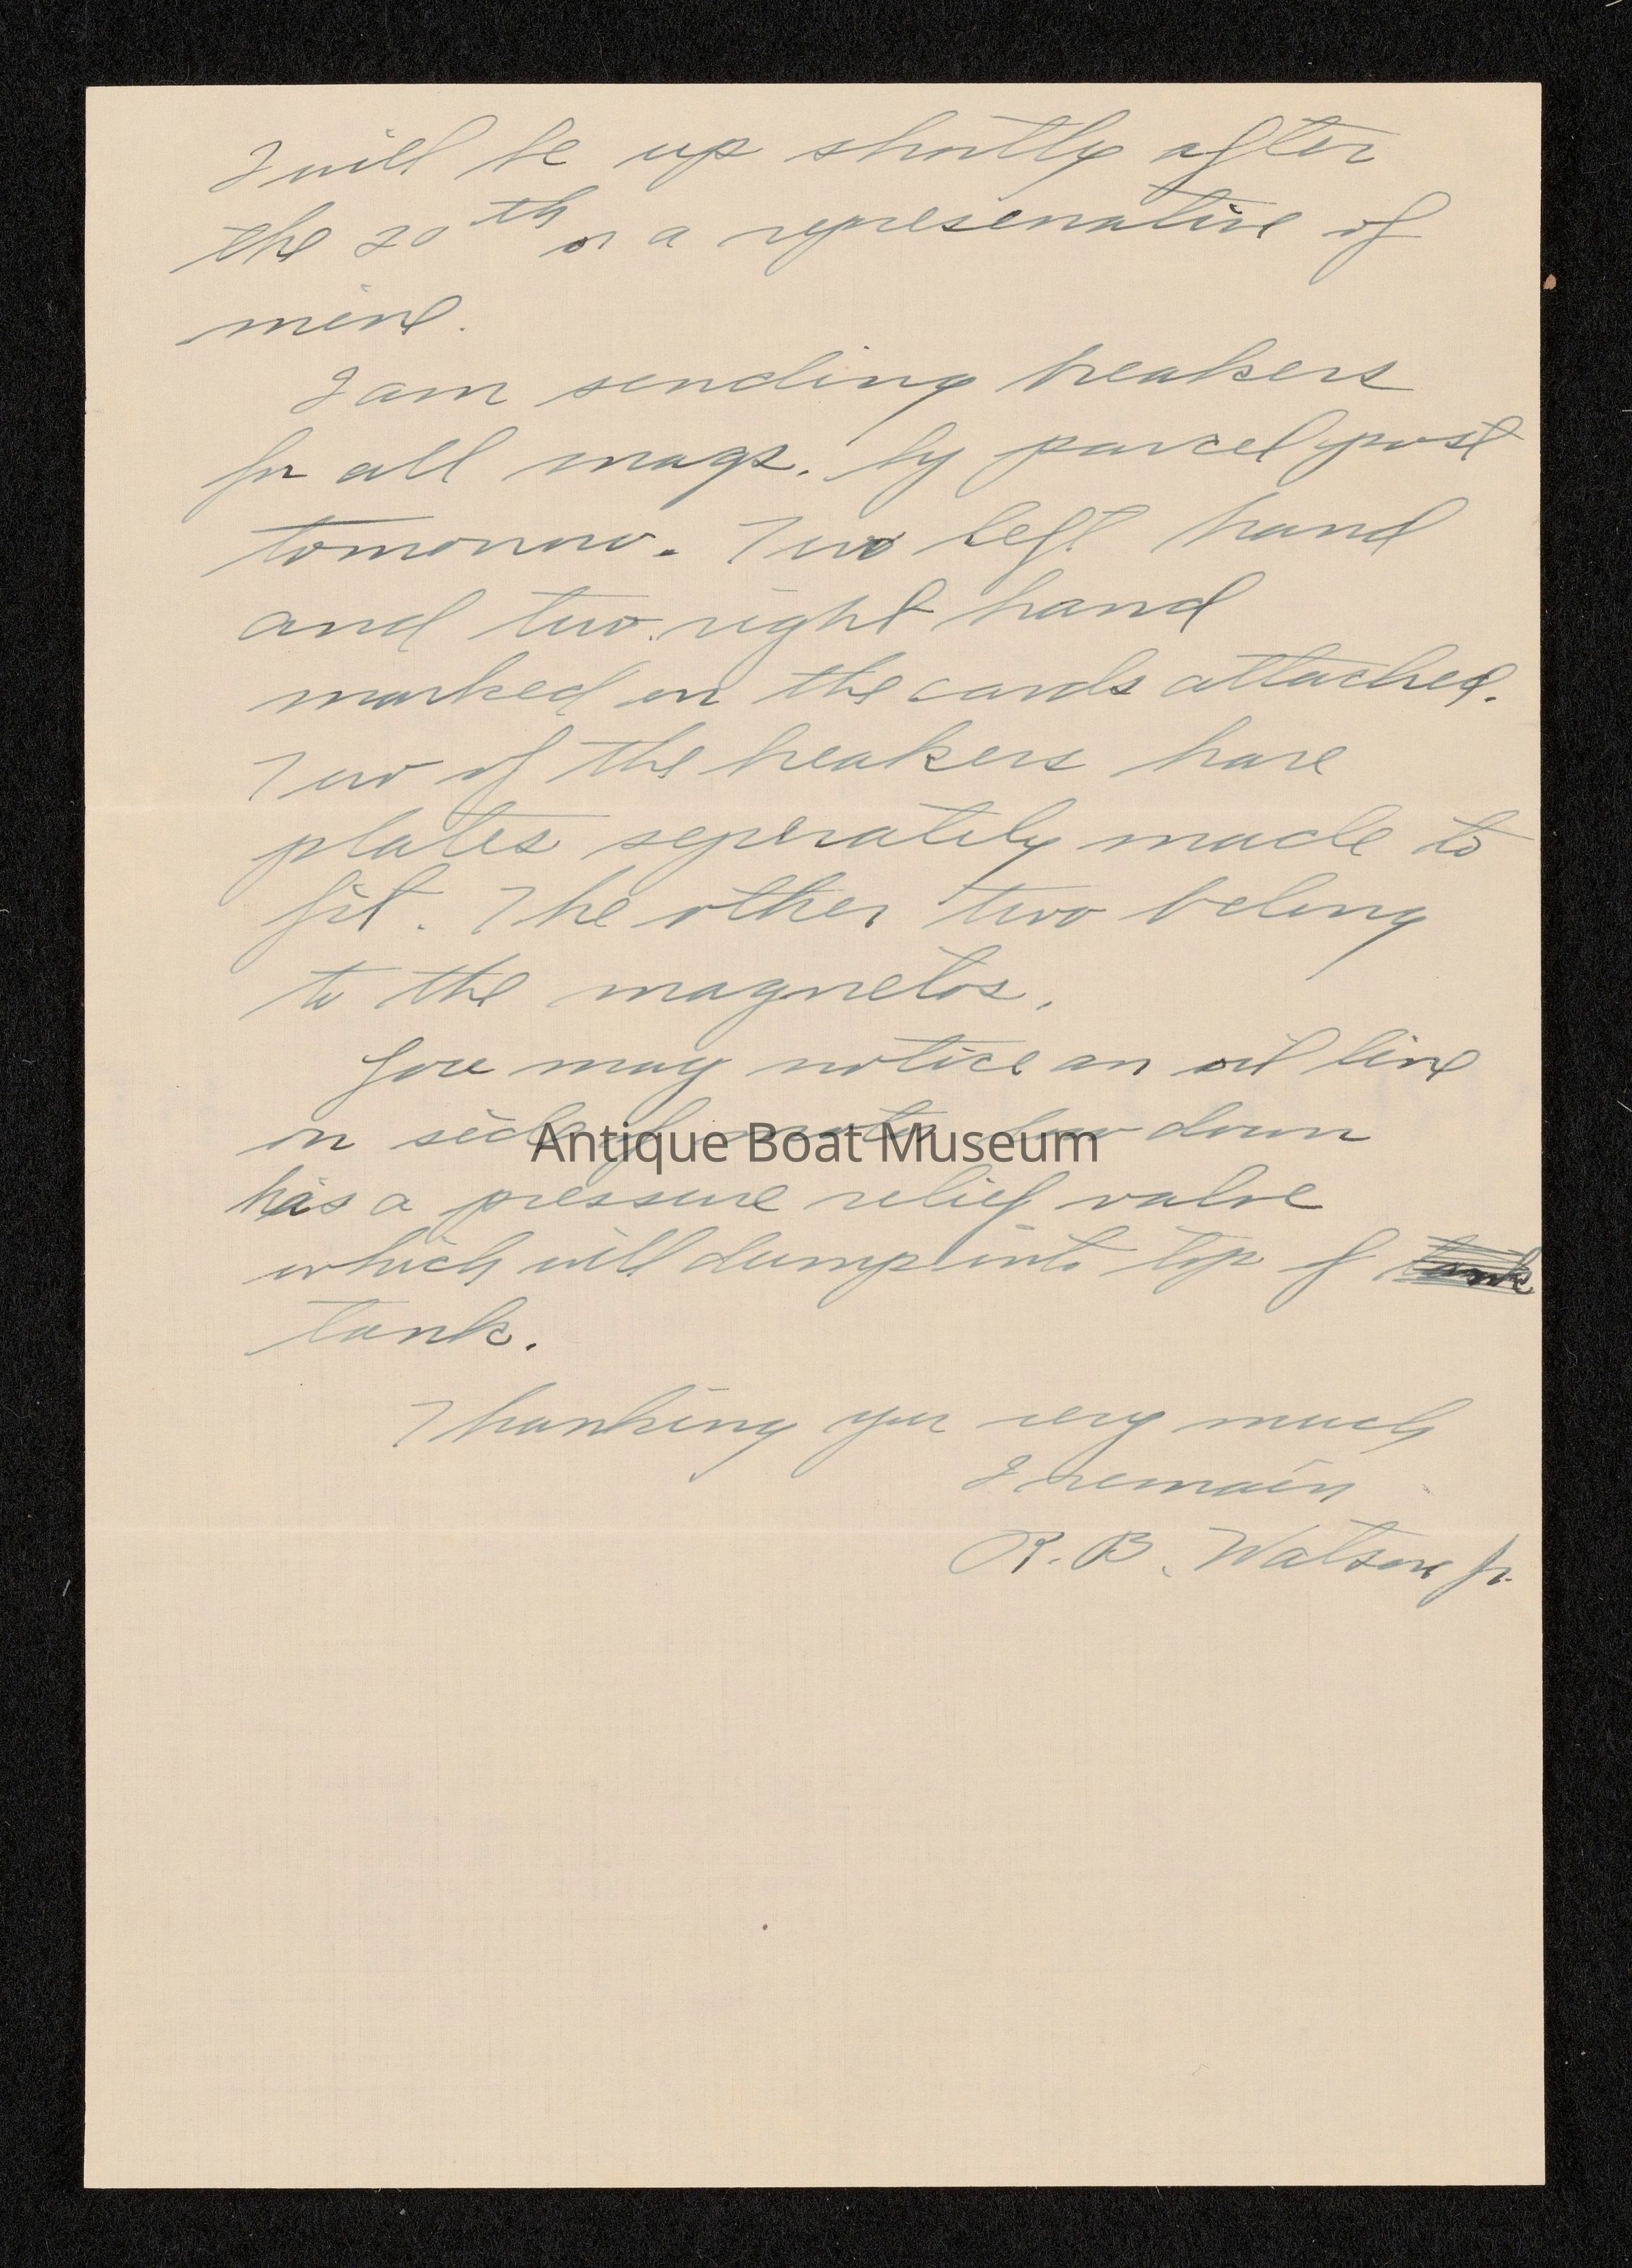 I will be up shortly after
the 20th or a represenative of
mine.
I am sending breakers
for all mags. by parcel post
tomorrow. Two left hand
and two right hand
marked on the cards attached.
Two of the breakers have
plates seperately made to
fit. The other two belong
to the magnetos.
You may notice an oil line
on side of motor low down
Antique Boat Museum
has a pressure relief valve
which will dump into top of tank
tank.
Thanking you very much
I remain
R. B. Watson Jr.